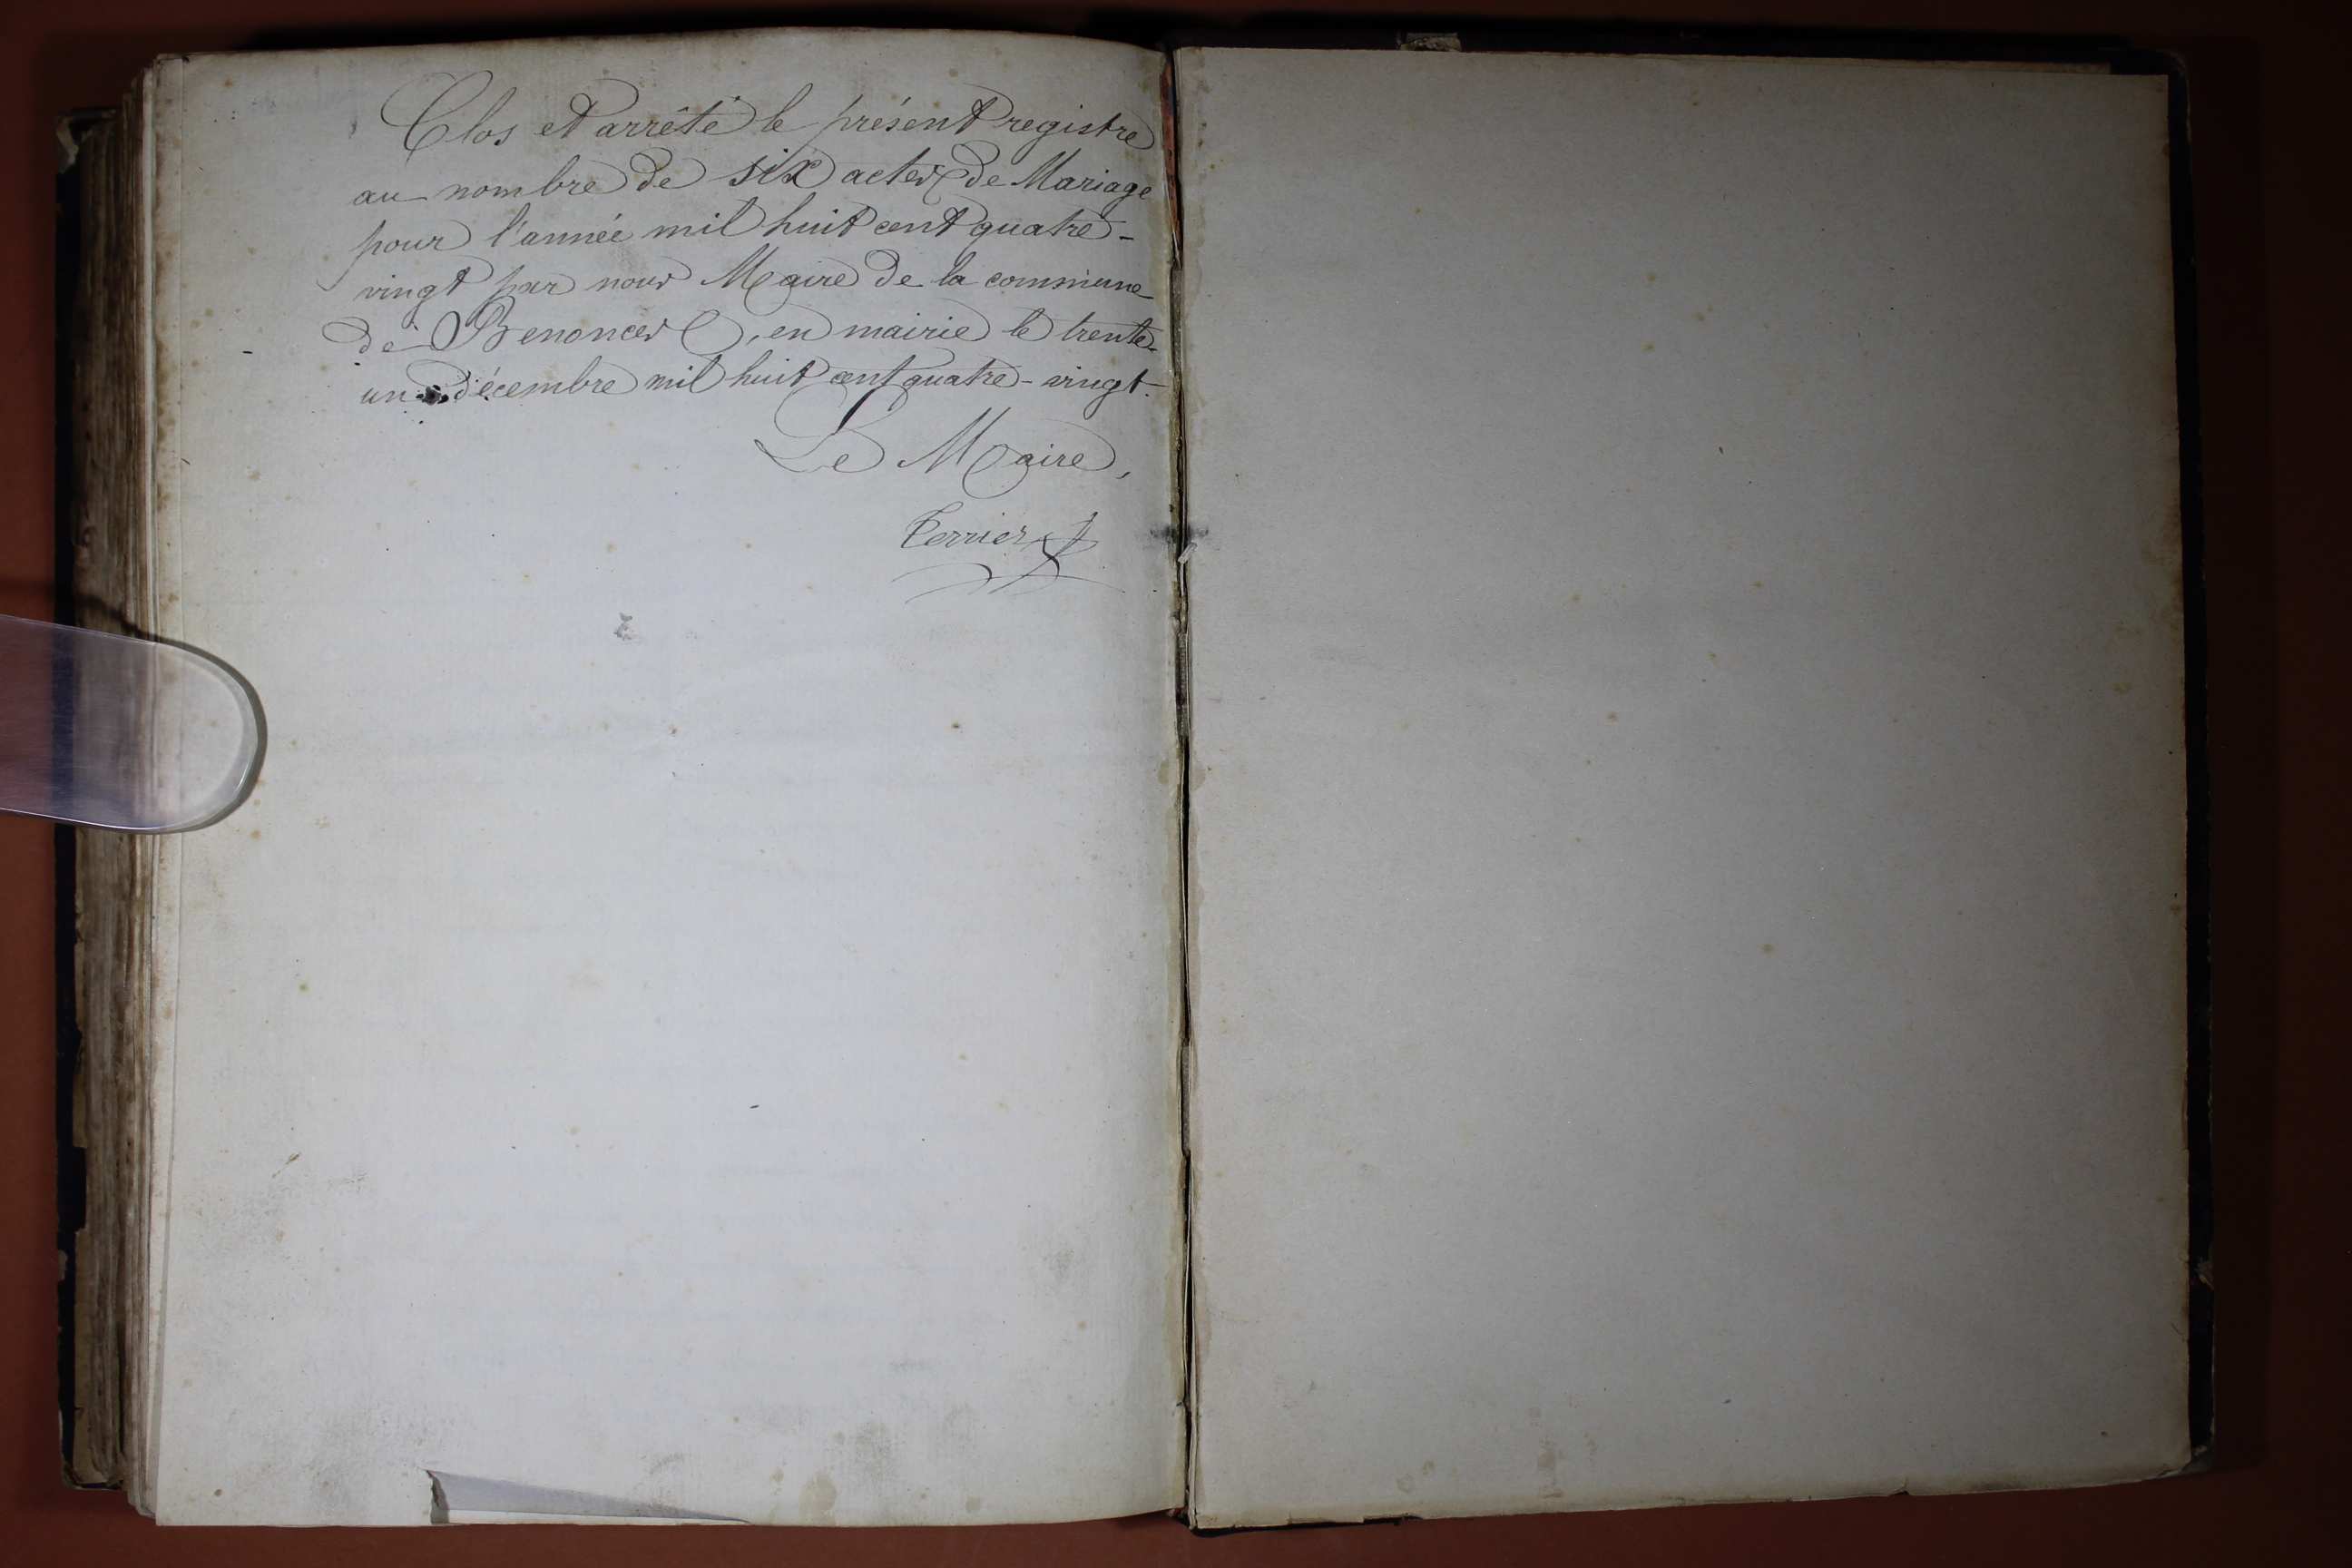 Clos et arrêté le présent registre
au nombre de six actes de Mariage
pour l'année mil huit cent quatre-
vingt par nous Maire de la commune
de Benonces, en mairie le trente-
un décembre mil huit cent quatre-vingt.
Le Maire,
Terrier